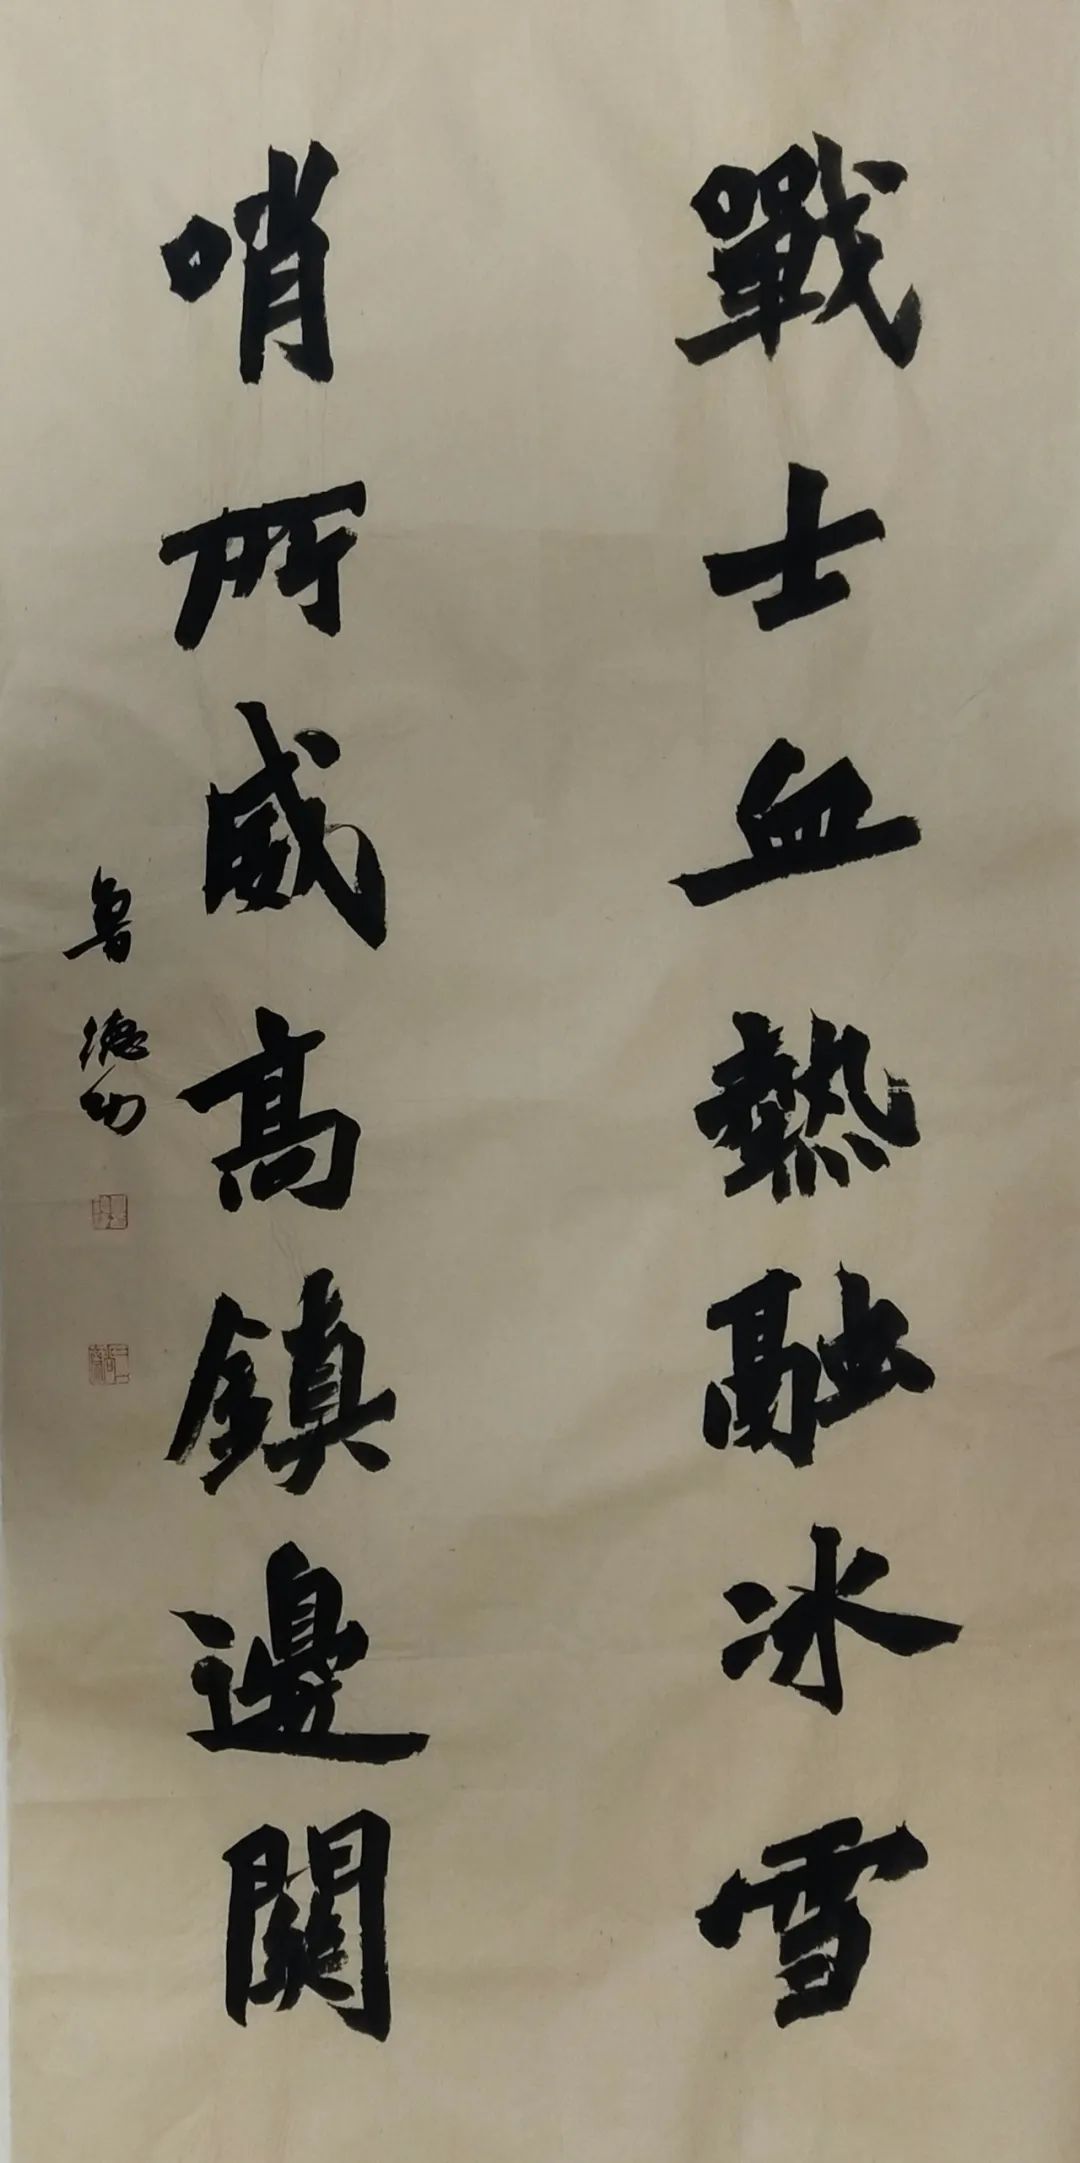 戰士血熱融冰雪
哨所威高鎮邊關
魯德功